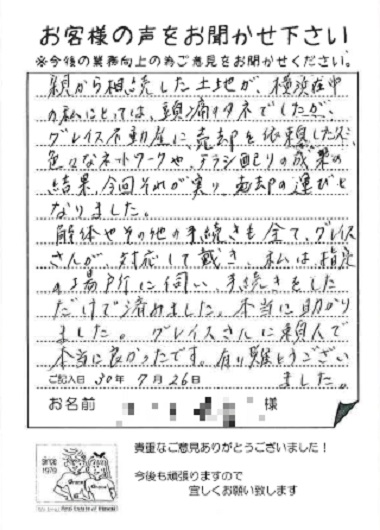 お客様の声をお聞かせ下さい
※今後の業務向上の為ご意見をお聞かせください。
親から相続した土地が、横浜在中
の私にとっては、頭痛のタネでしたが、
グレイス不動産に、売却を依頼した処、
色々なネットワークや、チラシ配りの成果の
結果、今回それが実り、売却の運びと
なりました。
解体やその他の手続きも全て、グレイス
さんが、対応して戴き、私は指定
の場所に伺い、手続きをした
だけで済みました。本当に助かり
ました。グレイスさんに頼んで
本当に良かったです。有り難とうござい
ご記入日 30年 7月 26日 ました。
お名前 様
貴重なご意見ありがとうございました！
今後も頑張りますので
宜しくお願い致します